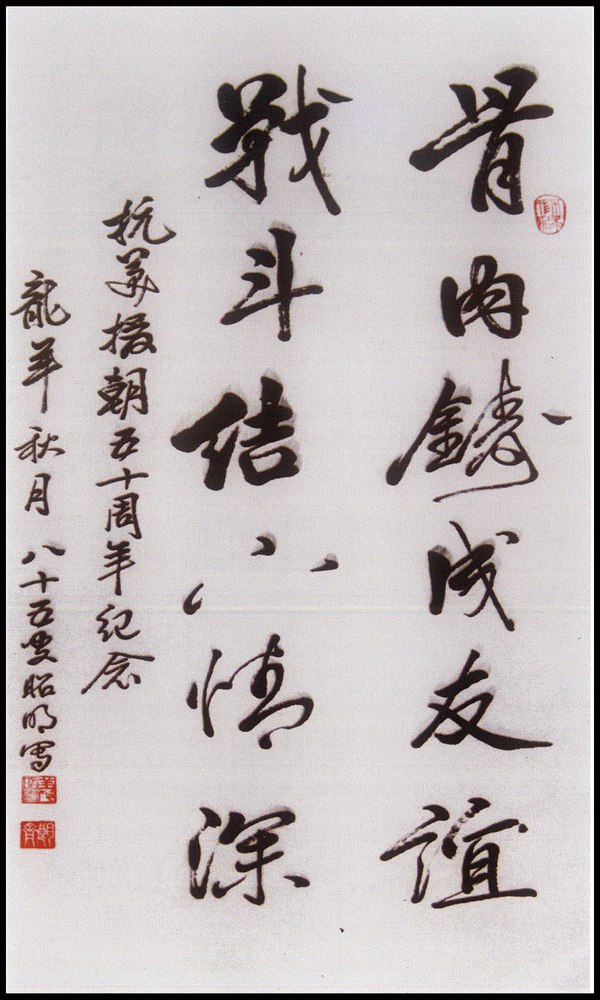 骨肉鑄成友誼
戰斗结心情深
抗美援朝五十周年纪念
龍年秋月 八十五叟昭明寫